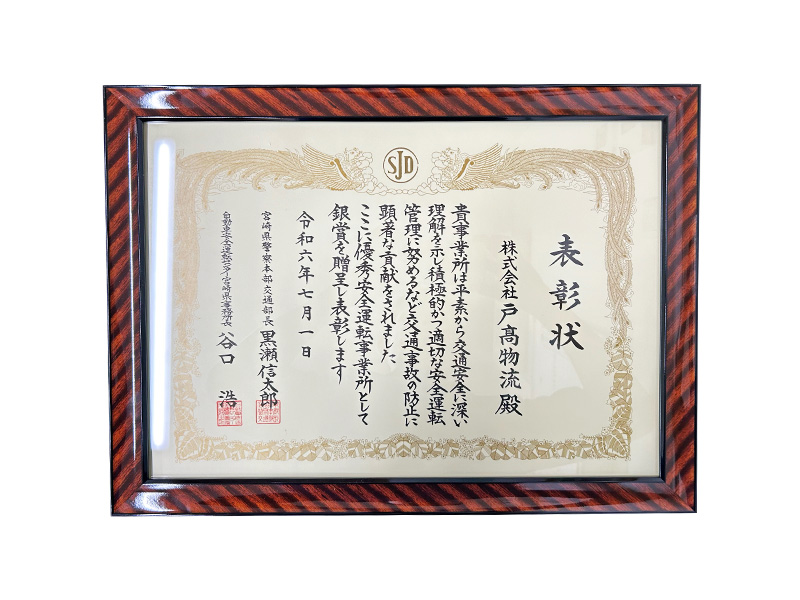 SJD
表彰状
株式会社戸高物流殿
貴事業所は平素から交通安全に深い
理解を示し積極的かつ適切な安全運転
管理に努めるなど交通事故の防止に
顕著な貢献をされました
ここに優秀安全運転事業所として
銀賞を贈呈し表彰します
令和六年七月一日
宮崎県警察本部交通部長 黒瀬信太郎
自動車安全運転センター宮崎県事務所長 谷口 浩